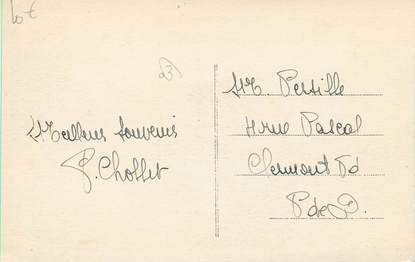 10 €
23
Meilleurs Souvenirs
P. Chollet
Mr. Persille
4 rue Pascal
Clermont Fd
P de D.